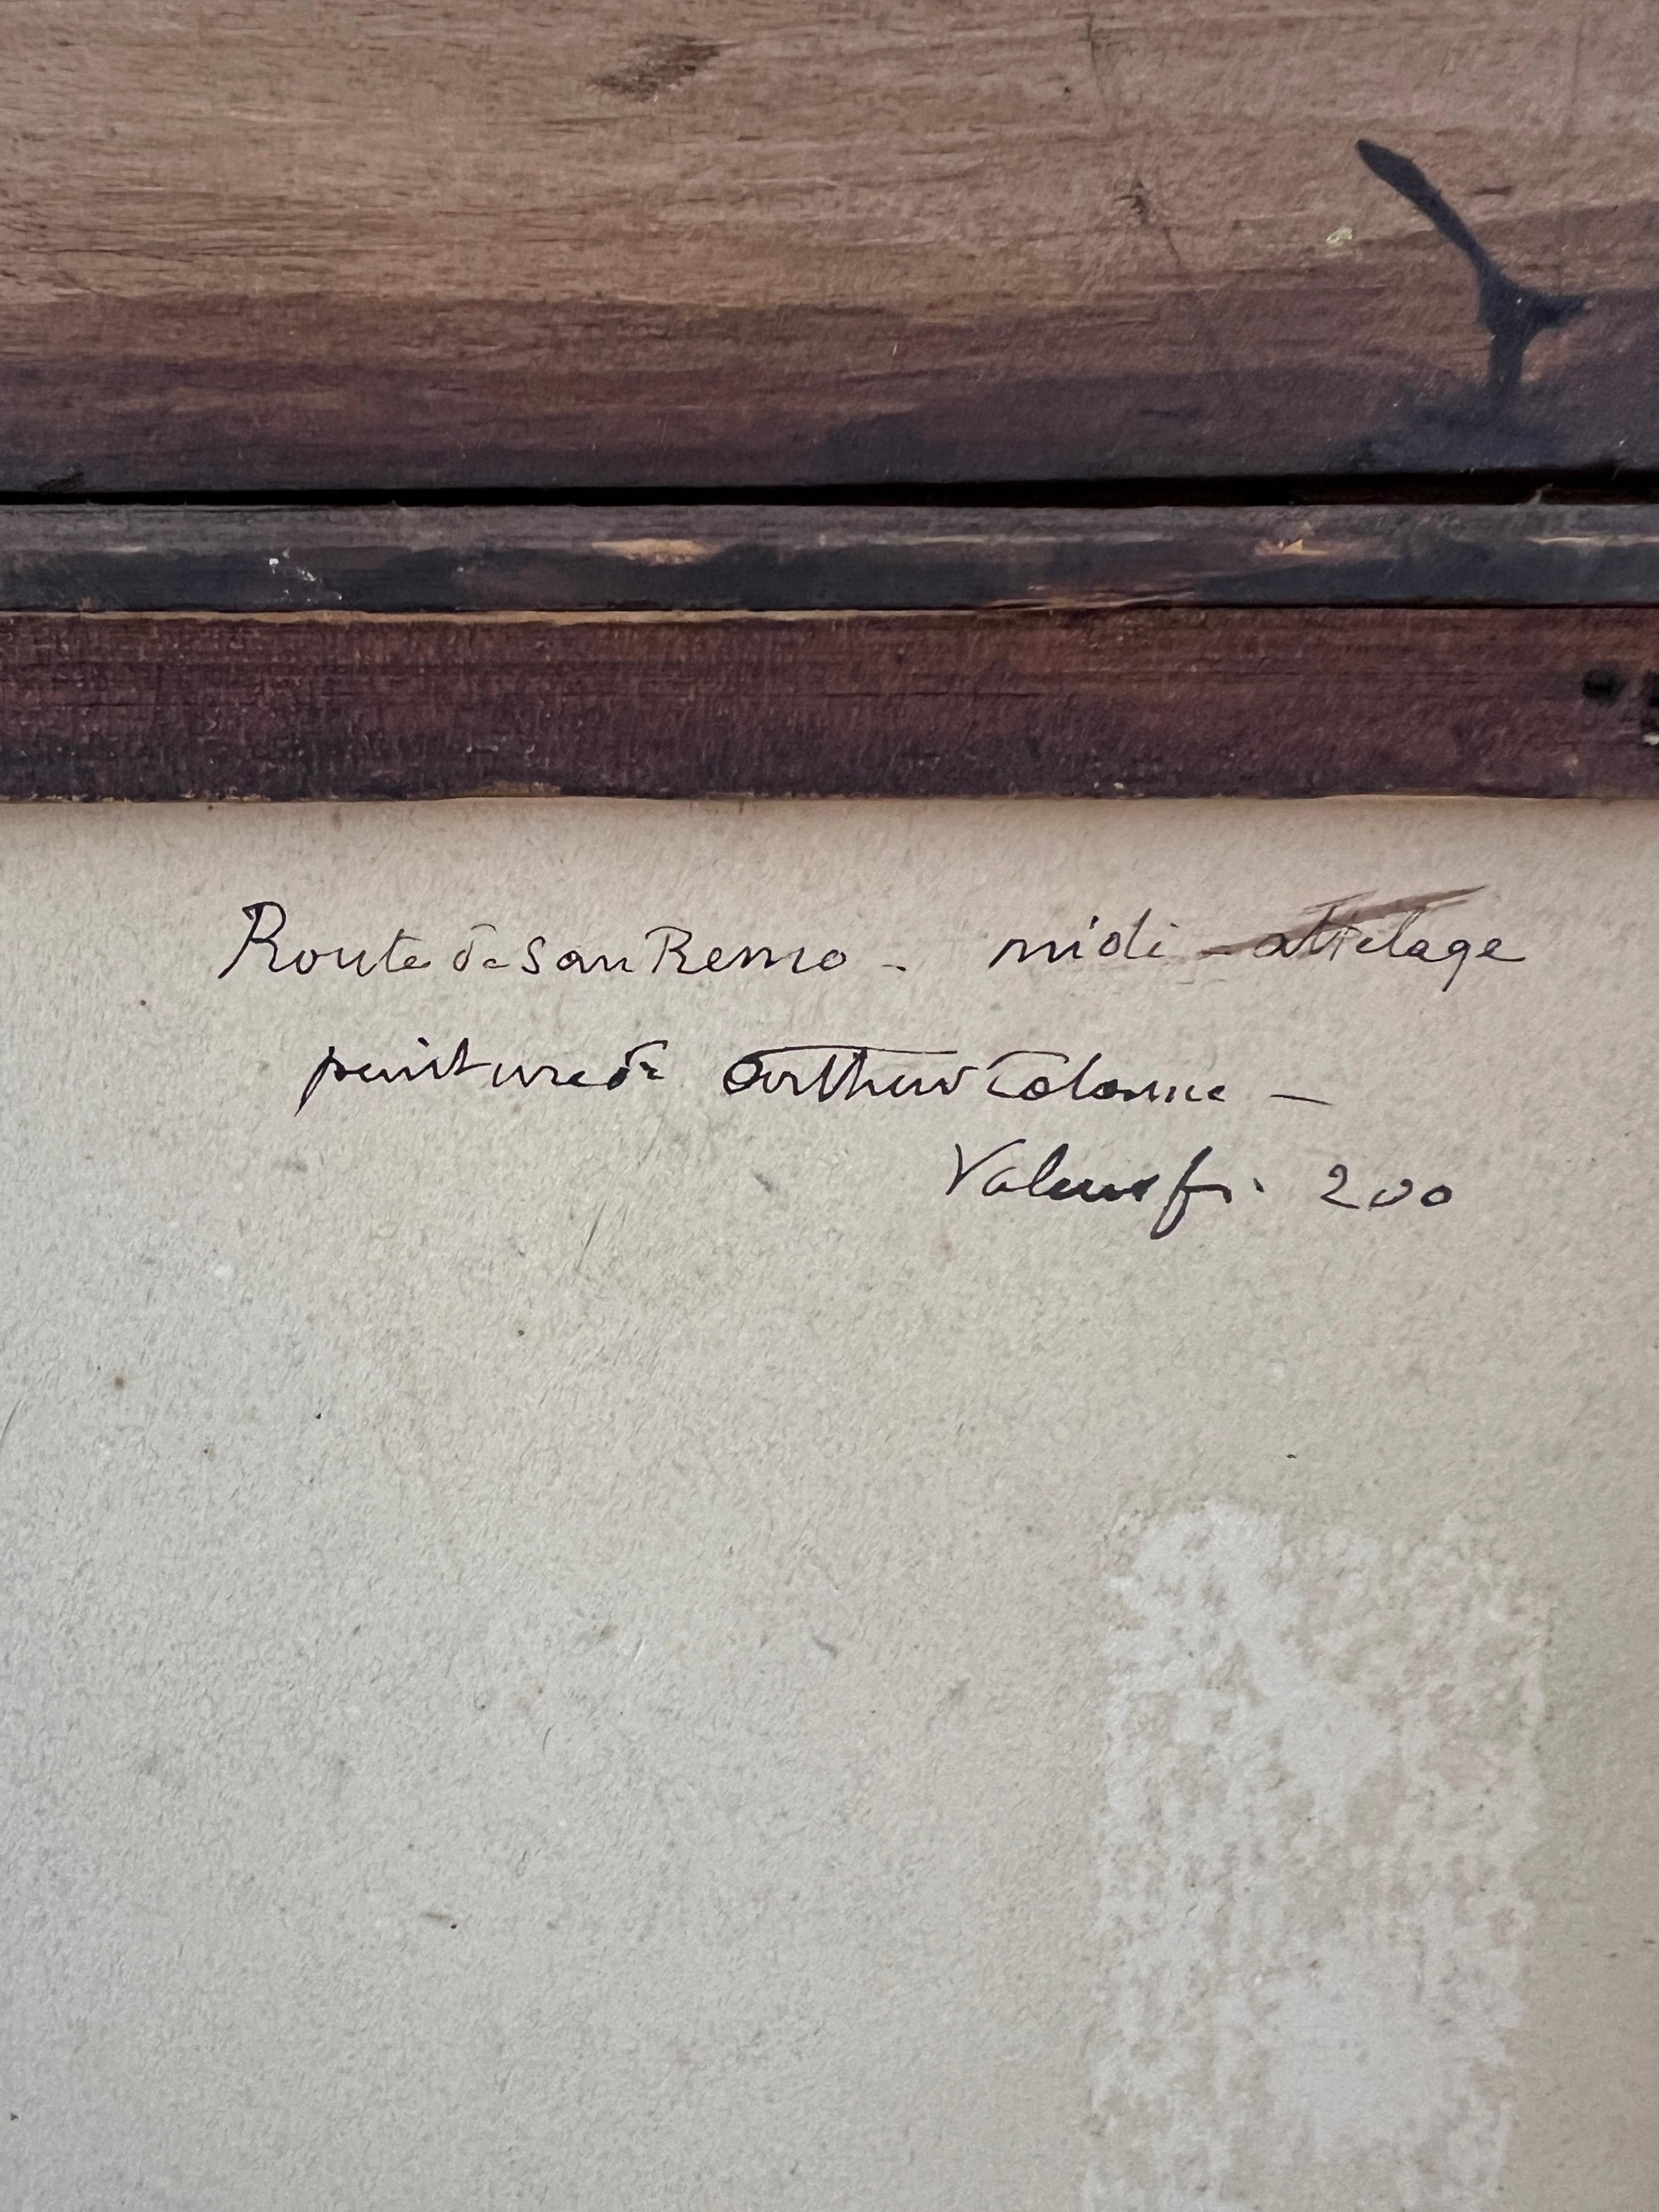 Route de San Remo - midi - attelage
peinture de Arthur Colonne -
Valeur fr. 200